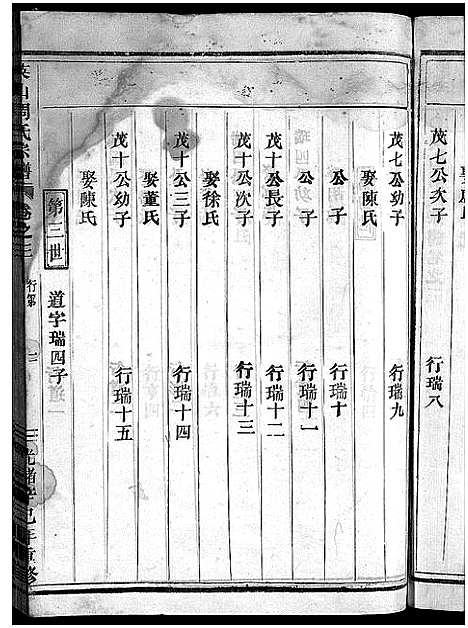 茂七公次子 行瑞八
茂七公幼子 行瑞九
娶陳氏
公子 行瑞十
公子 行瑞十一
茂十公長子 行瑞十二
茂十公次子 行瑞十三
娶徐氏
茂十公三子 行瑞十四
娶董氏
茂十公幼子 行瑞十五
娶陳氏
第三世 道字瑞四字
山周氏宗譜 卷之三 行第 光緒辛巳年重修